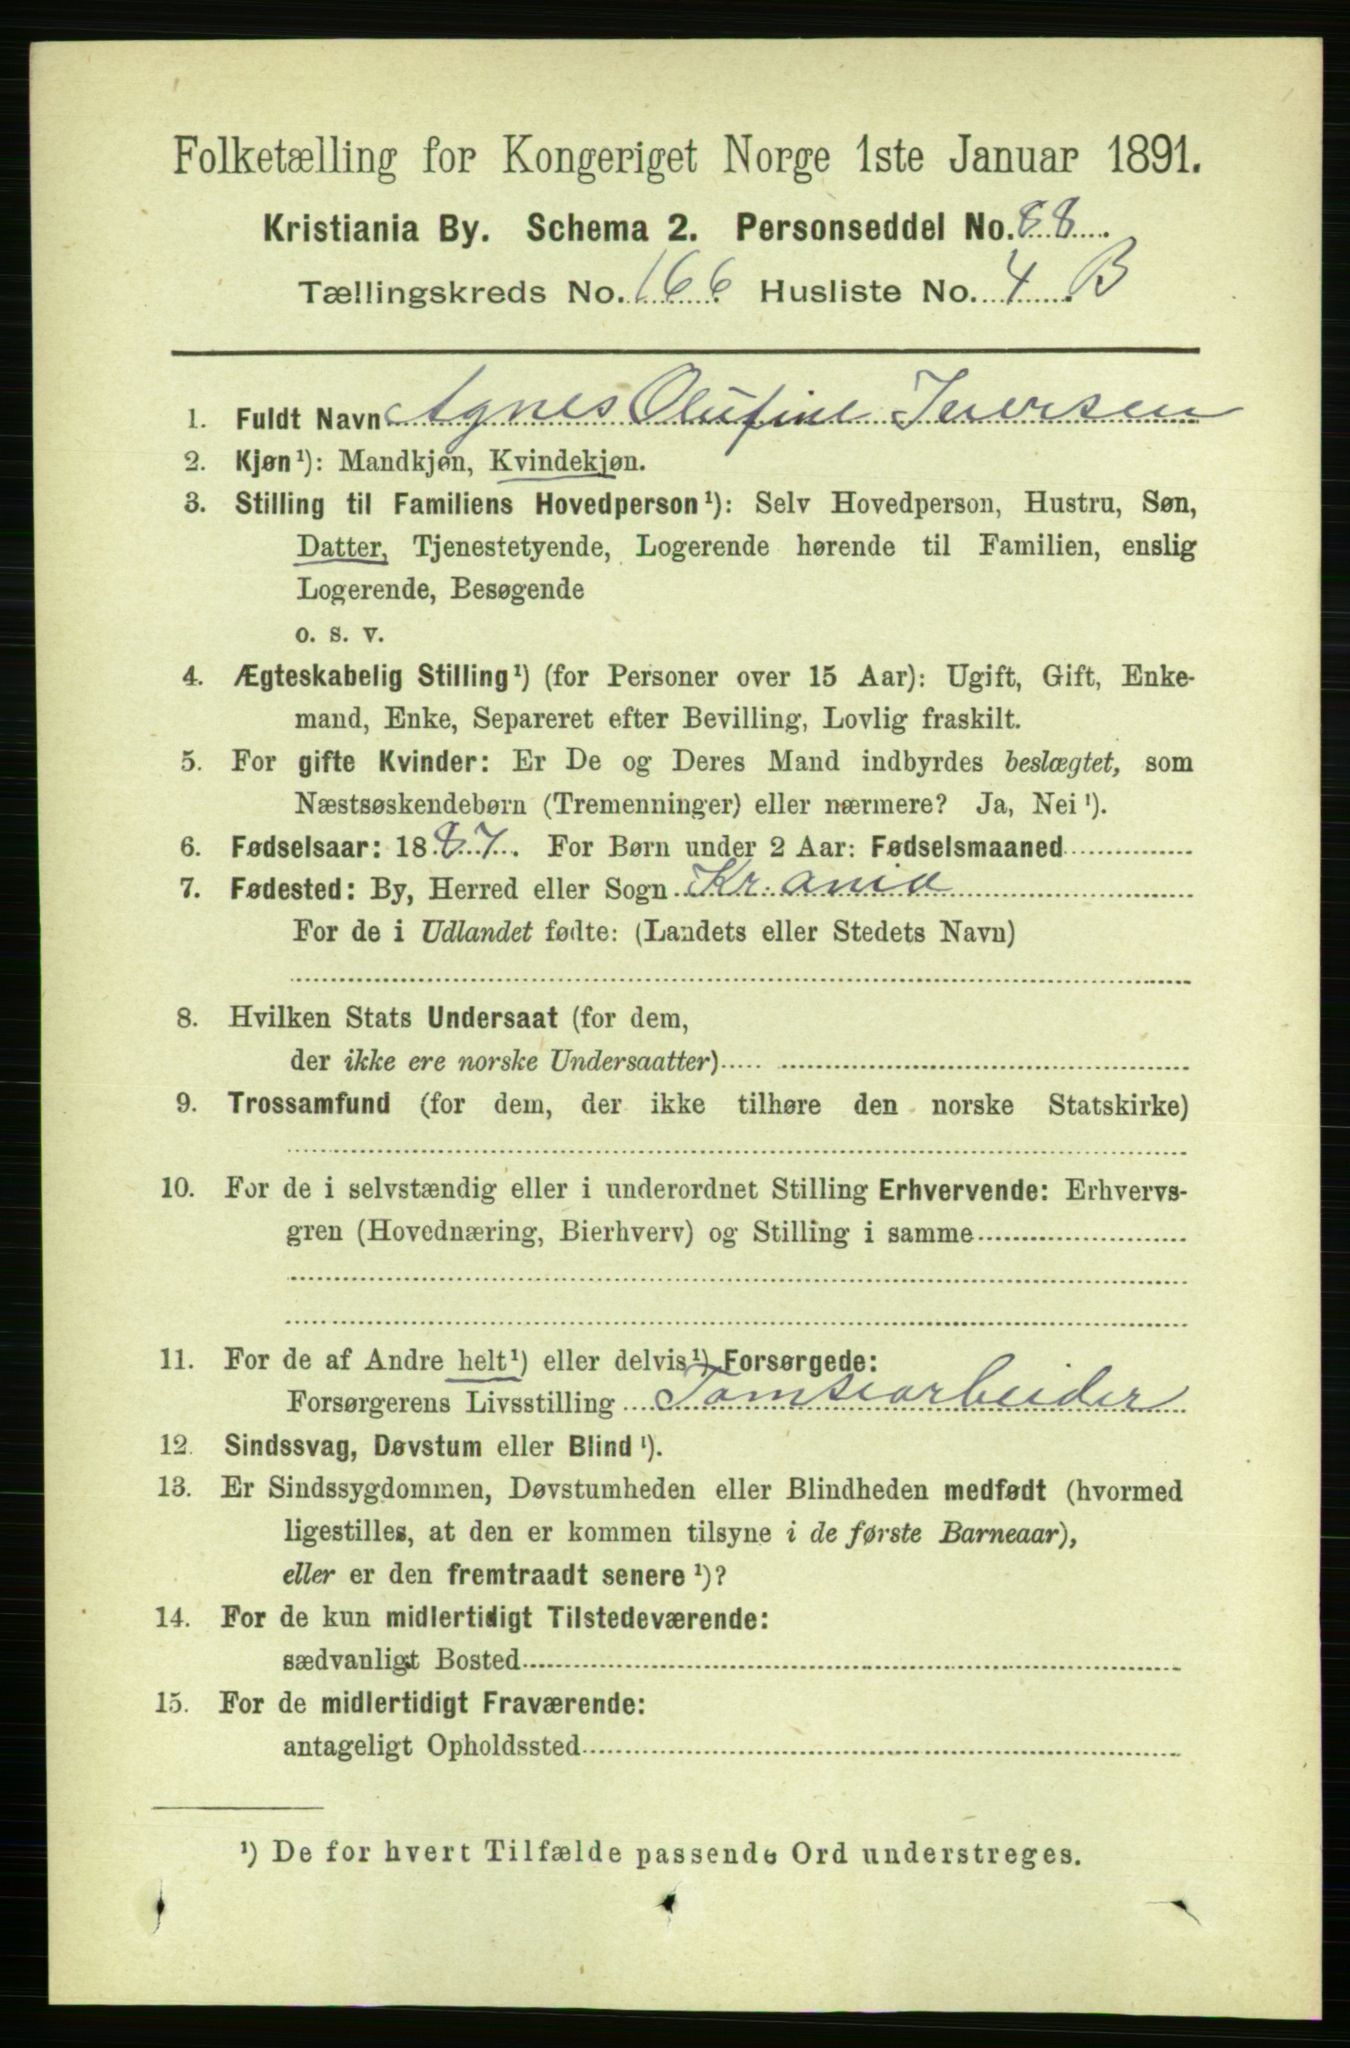 Folketælling for Kongeriget Norge 1ste Januar 1891.
Kristiania By. Schema 2. Personseddel No. 88.
Tællingskreds No. 166 Husliste No. 4 B
1. Fuldt Navn Agnes Olufine Iversen
2. Kjøn¹): Mandkjøn, Kvindekjøn.
3. Stilling til Familiens Hovedperson¹): Selv Hovedperson, Hustru, Søn,
Datter, Tjenestetyende, Logerende hørende til Familien, enslig
Logerende, Besøgende
o. s. v.
4. Ægteskabelig Stilling¹) (for Personer over 15 Aar): Ugift, Gift, Enke-
mand, Enke, Separeret efter Bevilling, Lovlig fraskilt.
5. For gifte Kvinder: Er De og Deres Mand indbyrdes beslægtet, som
Næstsøskendebørn (Tremenninger) eller nærmere? Ja, Nei¹).
6. Fødselsaar: 1887. For Børn under 2 Aar: Fødselsmaaned
7. Fødested: By, Herred eller Sogn Kr.ania
For de i Udlandet fødte: (Landets eller Stedets Navn)
8. Hvilken Stats Undersaat (for dem,
der ikke ere norske Undersaatter)
9. Trossamfund (for dem, der ikke tilhøre den norske Statskirke)
10. For de i selvstændig eller i underordnet Stilling Erhvervende: Erhvervs-
gren (Hovednæring, Bierhverv) og Stilling i samme
11. For de af Andre helt¹) eller delvis¹) Forsørgede:
Forsørgerens Livsstilling Tomtearbeider
12. Sindssvag, Døvstum eller Blind¹).
13. Er Sindssygdommen, Døvstumheden eller Blindheden medfødt (hvormed
ligestilles, at den er kommen tilsyne i de første Barneaar),
eller er den fremtraadt senere¹)?
14. For de kun midlertidigt Tilstedeværende:
sædvanligt Bosted
15. For de midlertidigt Fraværende:
antageligt Opholdssted
¹) De for hvert Tilfælde passende Ord understreges.